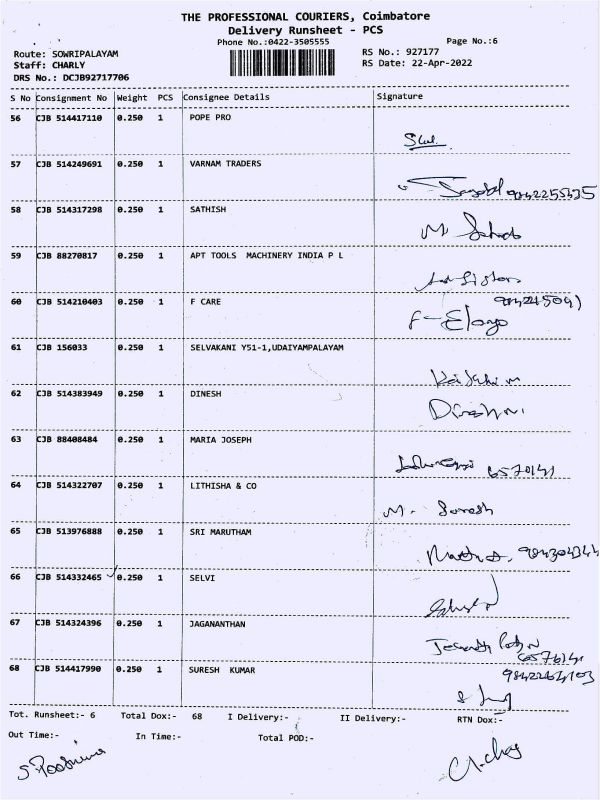 THE PROFESSIONAL COURIERS, Coimbatore
Delivery Runsheet - PCS
Phone No.:0422-3505555
Page No.:6
Route: SOWRIPALAYAM
RS No.: 927177
Staff: CHARLY
RS Date: 22-Apr-2022
DRS No.: DCJB92717706
S No Consignment No Weight PCS Consignee Details Signature
56 CJB 514417110 0.250 1 POPE PRO
57 CJB 514249691 0.250 1 VARNAM TRADERS
58 CJB 514317298 0.250 1 SATHISH
59 CJB 88270817 0.250 1 APT TOOLS MACHINERY INDIA P L
60 CJB 514210403 0.250 1 F CARE
61 CJB 156033 0.250 1 SELVAKANI Y51-1,UDAIYAMPALAYAM
62 CJB 514383949 0.250 1 DINESH
63 CJB 88408484 0.250 1 MARIA JOSEPH
64 CJB 514322707 0.250 1 LITHISHA & CO
M. Suresh
65 CJB 513976888 0.250 1 SRI MARUTHAM
66 CJB 514332465 0.250 1 SELVI
67 CJB 514324396 0.250 1 JAGANANTHAN
68 CJB 514417990 0.250 1 SURESH KUMAR
Tot. Runsheet:- 6 Total Dox:- 68 I Delivery:- II Delivery:- RTN Dox:-
Out Time:- In Time:- Total POD:-